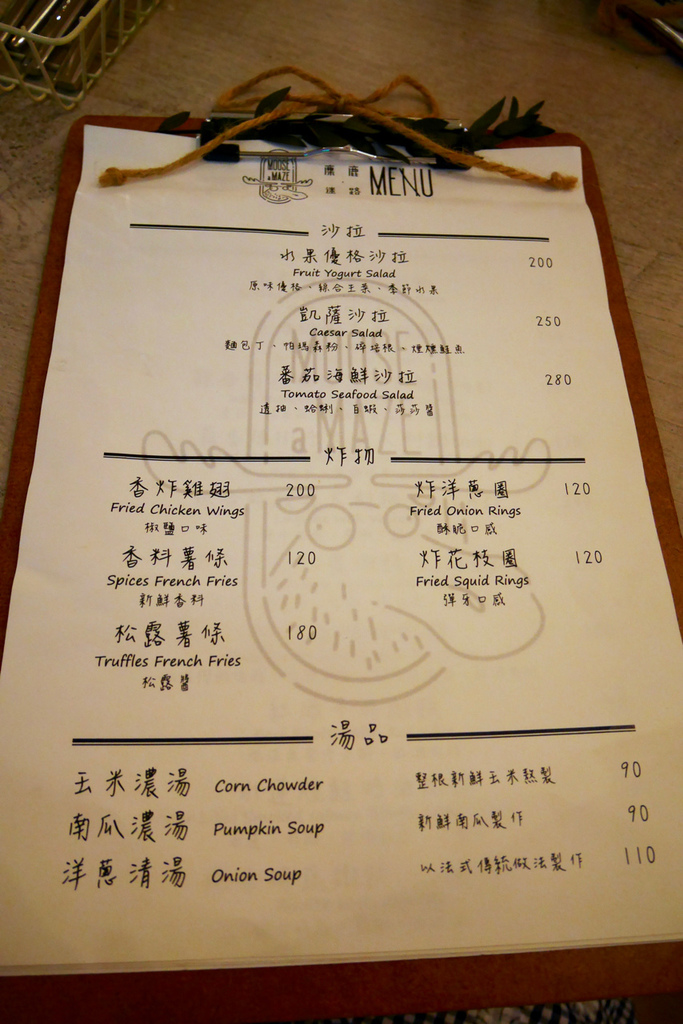 MOOSE
a MAZE
麋 鹿
迷 路
MENU
沙拉
水果優格沙拉 200
Fruit Yogurt Salad
原味優格、綜合玉米、季節水果
凱薩沙拉 250
Caesar Salad
麵包丁、帕瑪森粉、碎培根、煙燻鮭魚
蕃茄海鮮沙拉 280
Tomato Seafood Salad
透抽、蛤蜊、白蝦、莎莎醬
MOOSE
aMAZE
炸物
香炸雞翅 200
Fried Chicken Wings
椒鹽口味
香料薯條 120
Spices French Fries
新鮮香料
松露薯條 180
Truffles French Fries
松露醬
炸洋蔥圈 120
Fried Onion Rings
酥脆口感
炸花枝圈 120
Fried Squid Rings
彈牙口感
湯品
玉米濃湯 Corn Chowder 整根新鮮玉米熬製 90
南瓜濃湯 Pumpkin Soup 新鮮南瓜製作 90
洋蔥清湯 Onion Soup 以法式傳統做法製作 110